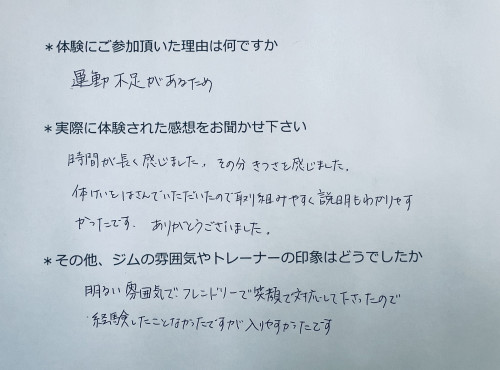 ＊体験にご参加頂いた理由は何ですか
運動不足があるため
＊実際に体験された感想をお聞かせ下さい
時間が長く感じました。その分きつさを感じました。
休けいをはさんでいただいたので取り組みやすく説明もわかりやす
かったです。ありがとうございました。
＊その他、ジムの雰囲気やトレーナーの印象はどうでしたか
明るい雰囲気で フレンドリーで笑顔で対応して下さったので
経験したことなかったですが入りやすかったです